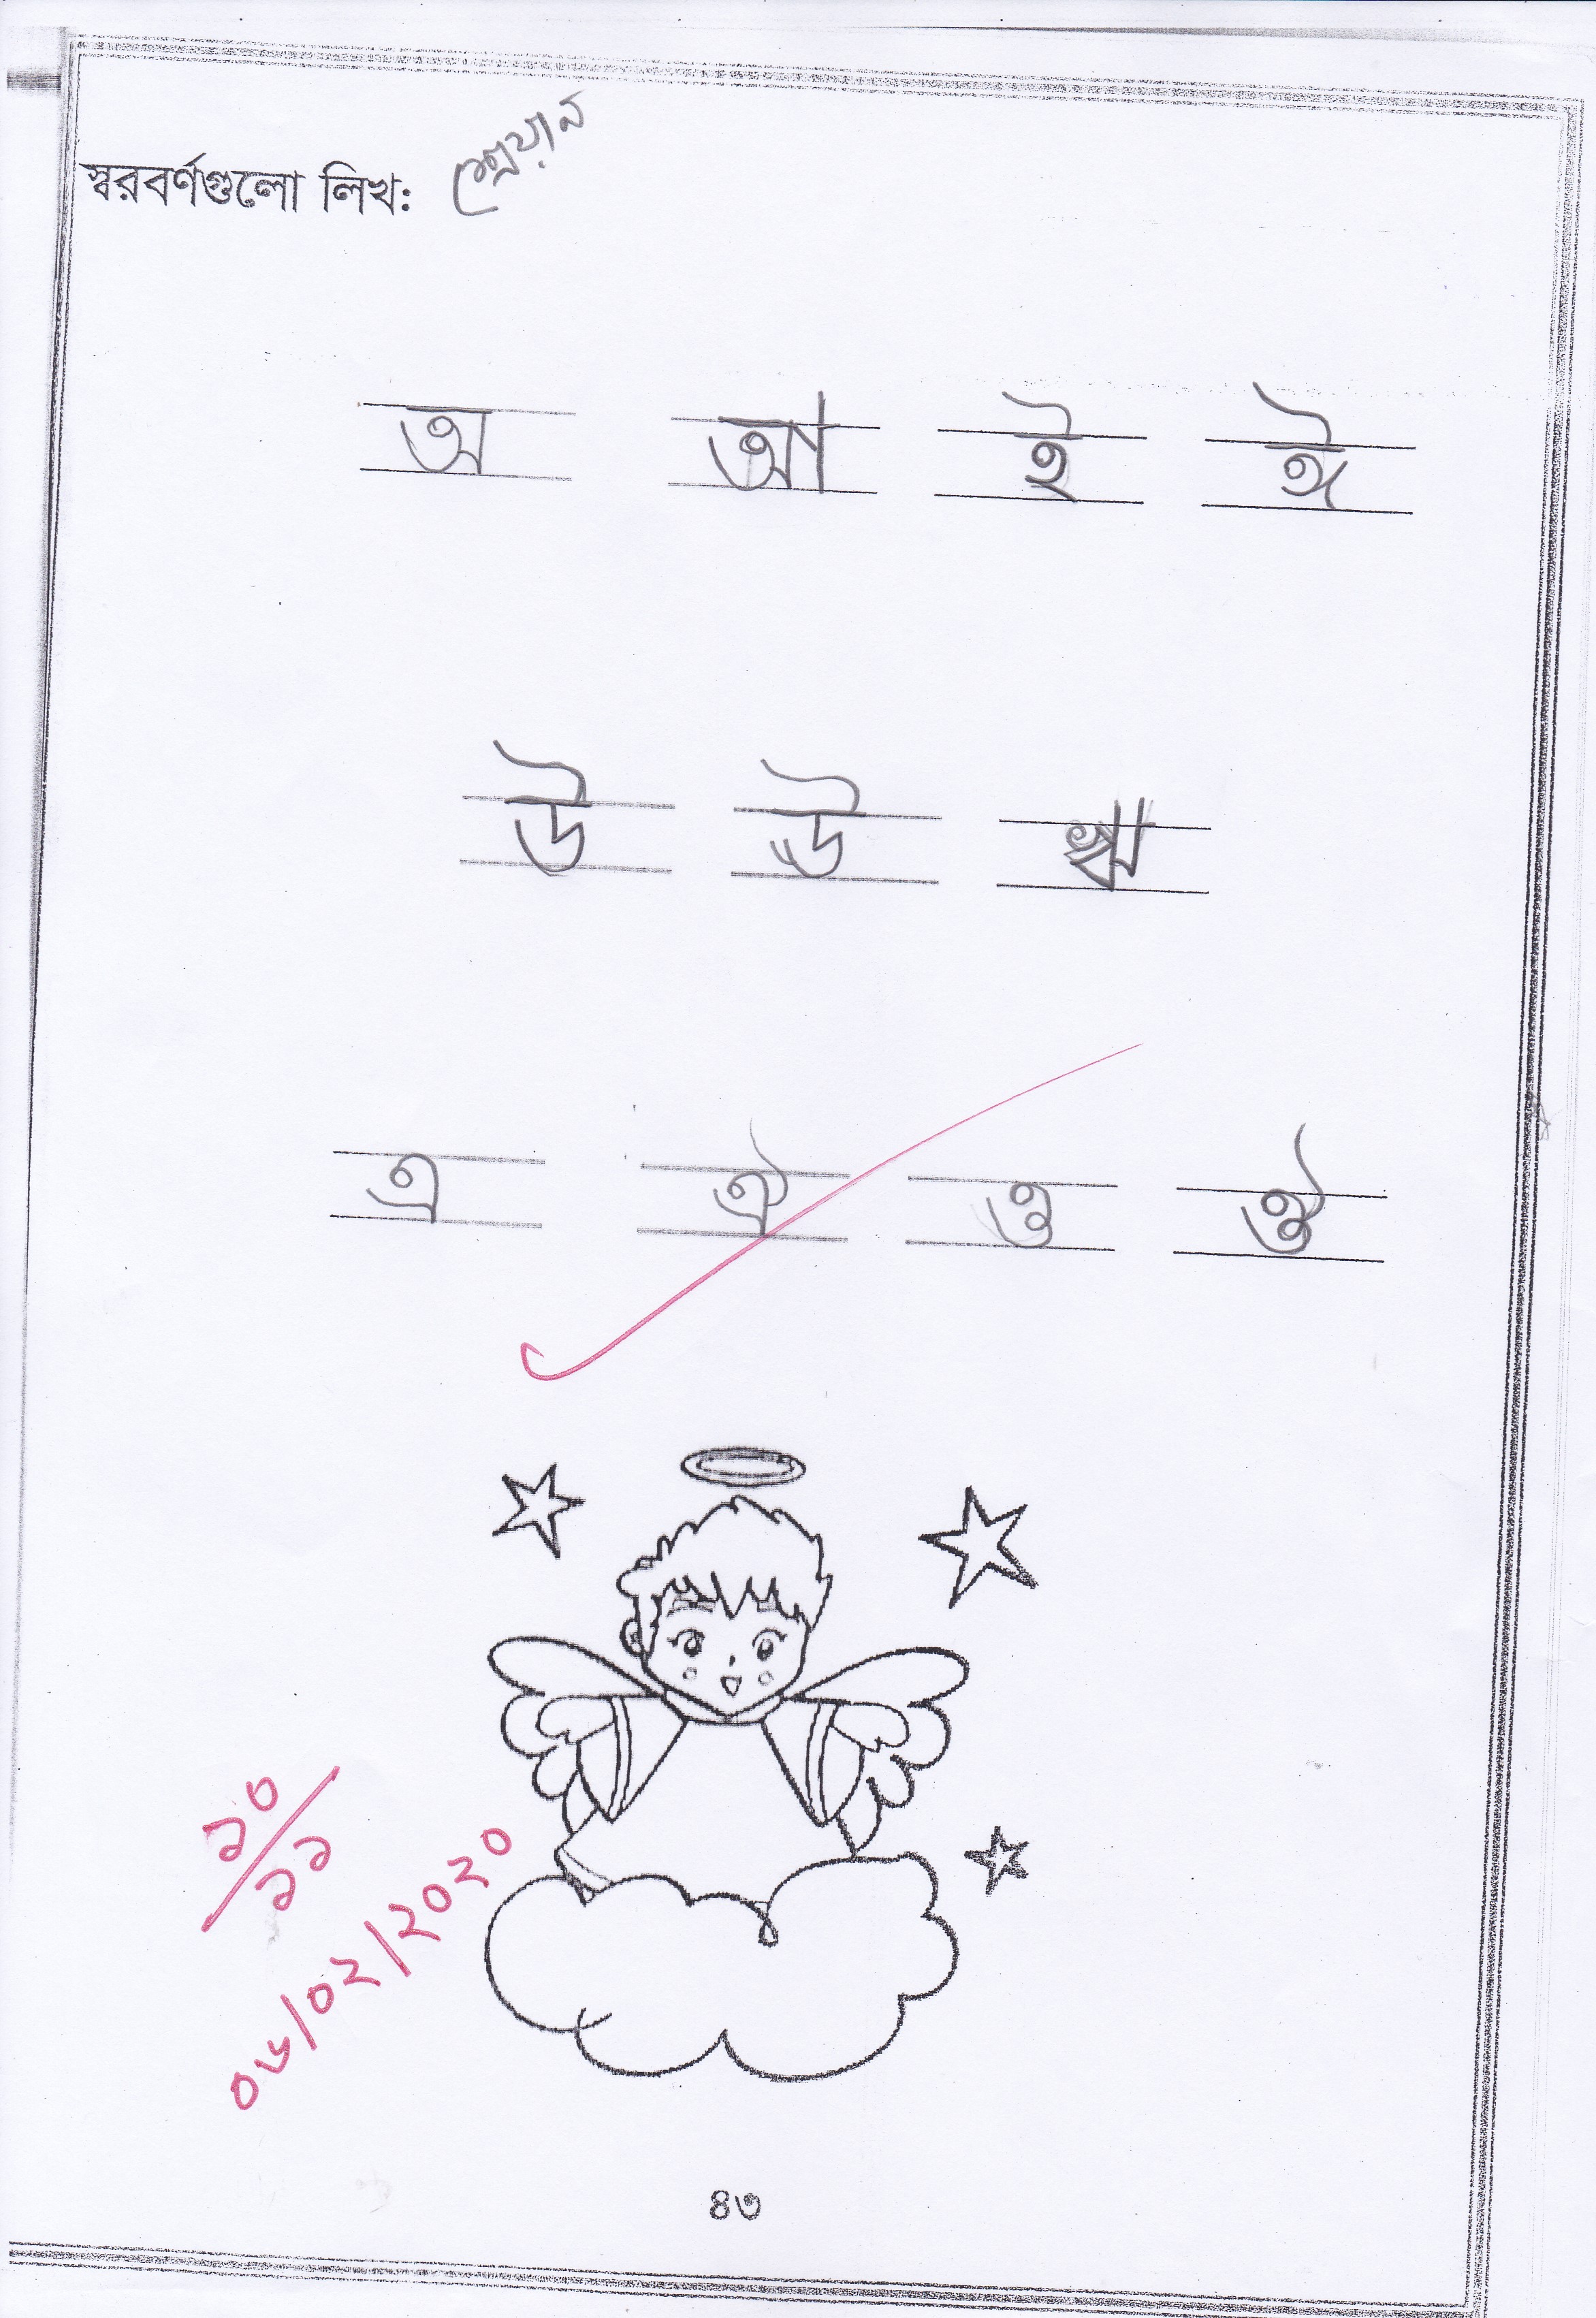 স্বরবর্ণগুলো লিখ: শ্রেয়ান
অ আ ই ঈ
উ ঊ ঋ
এ ঐ ও ঔ
১০/১১
০৬/০২/২০২০
৪৩